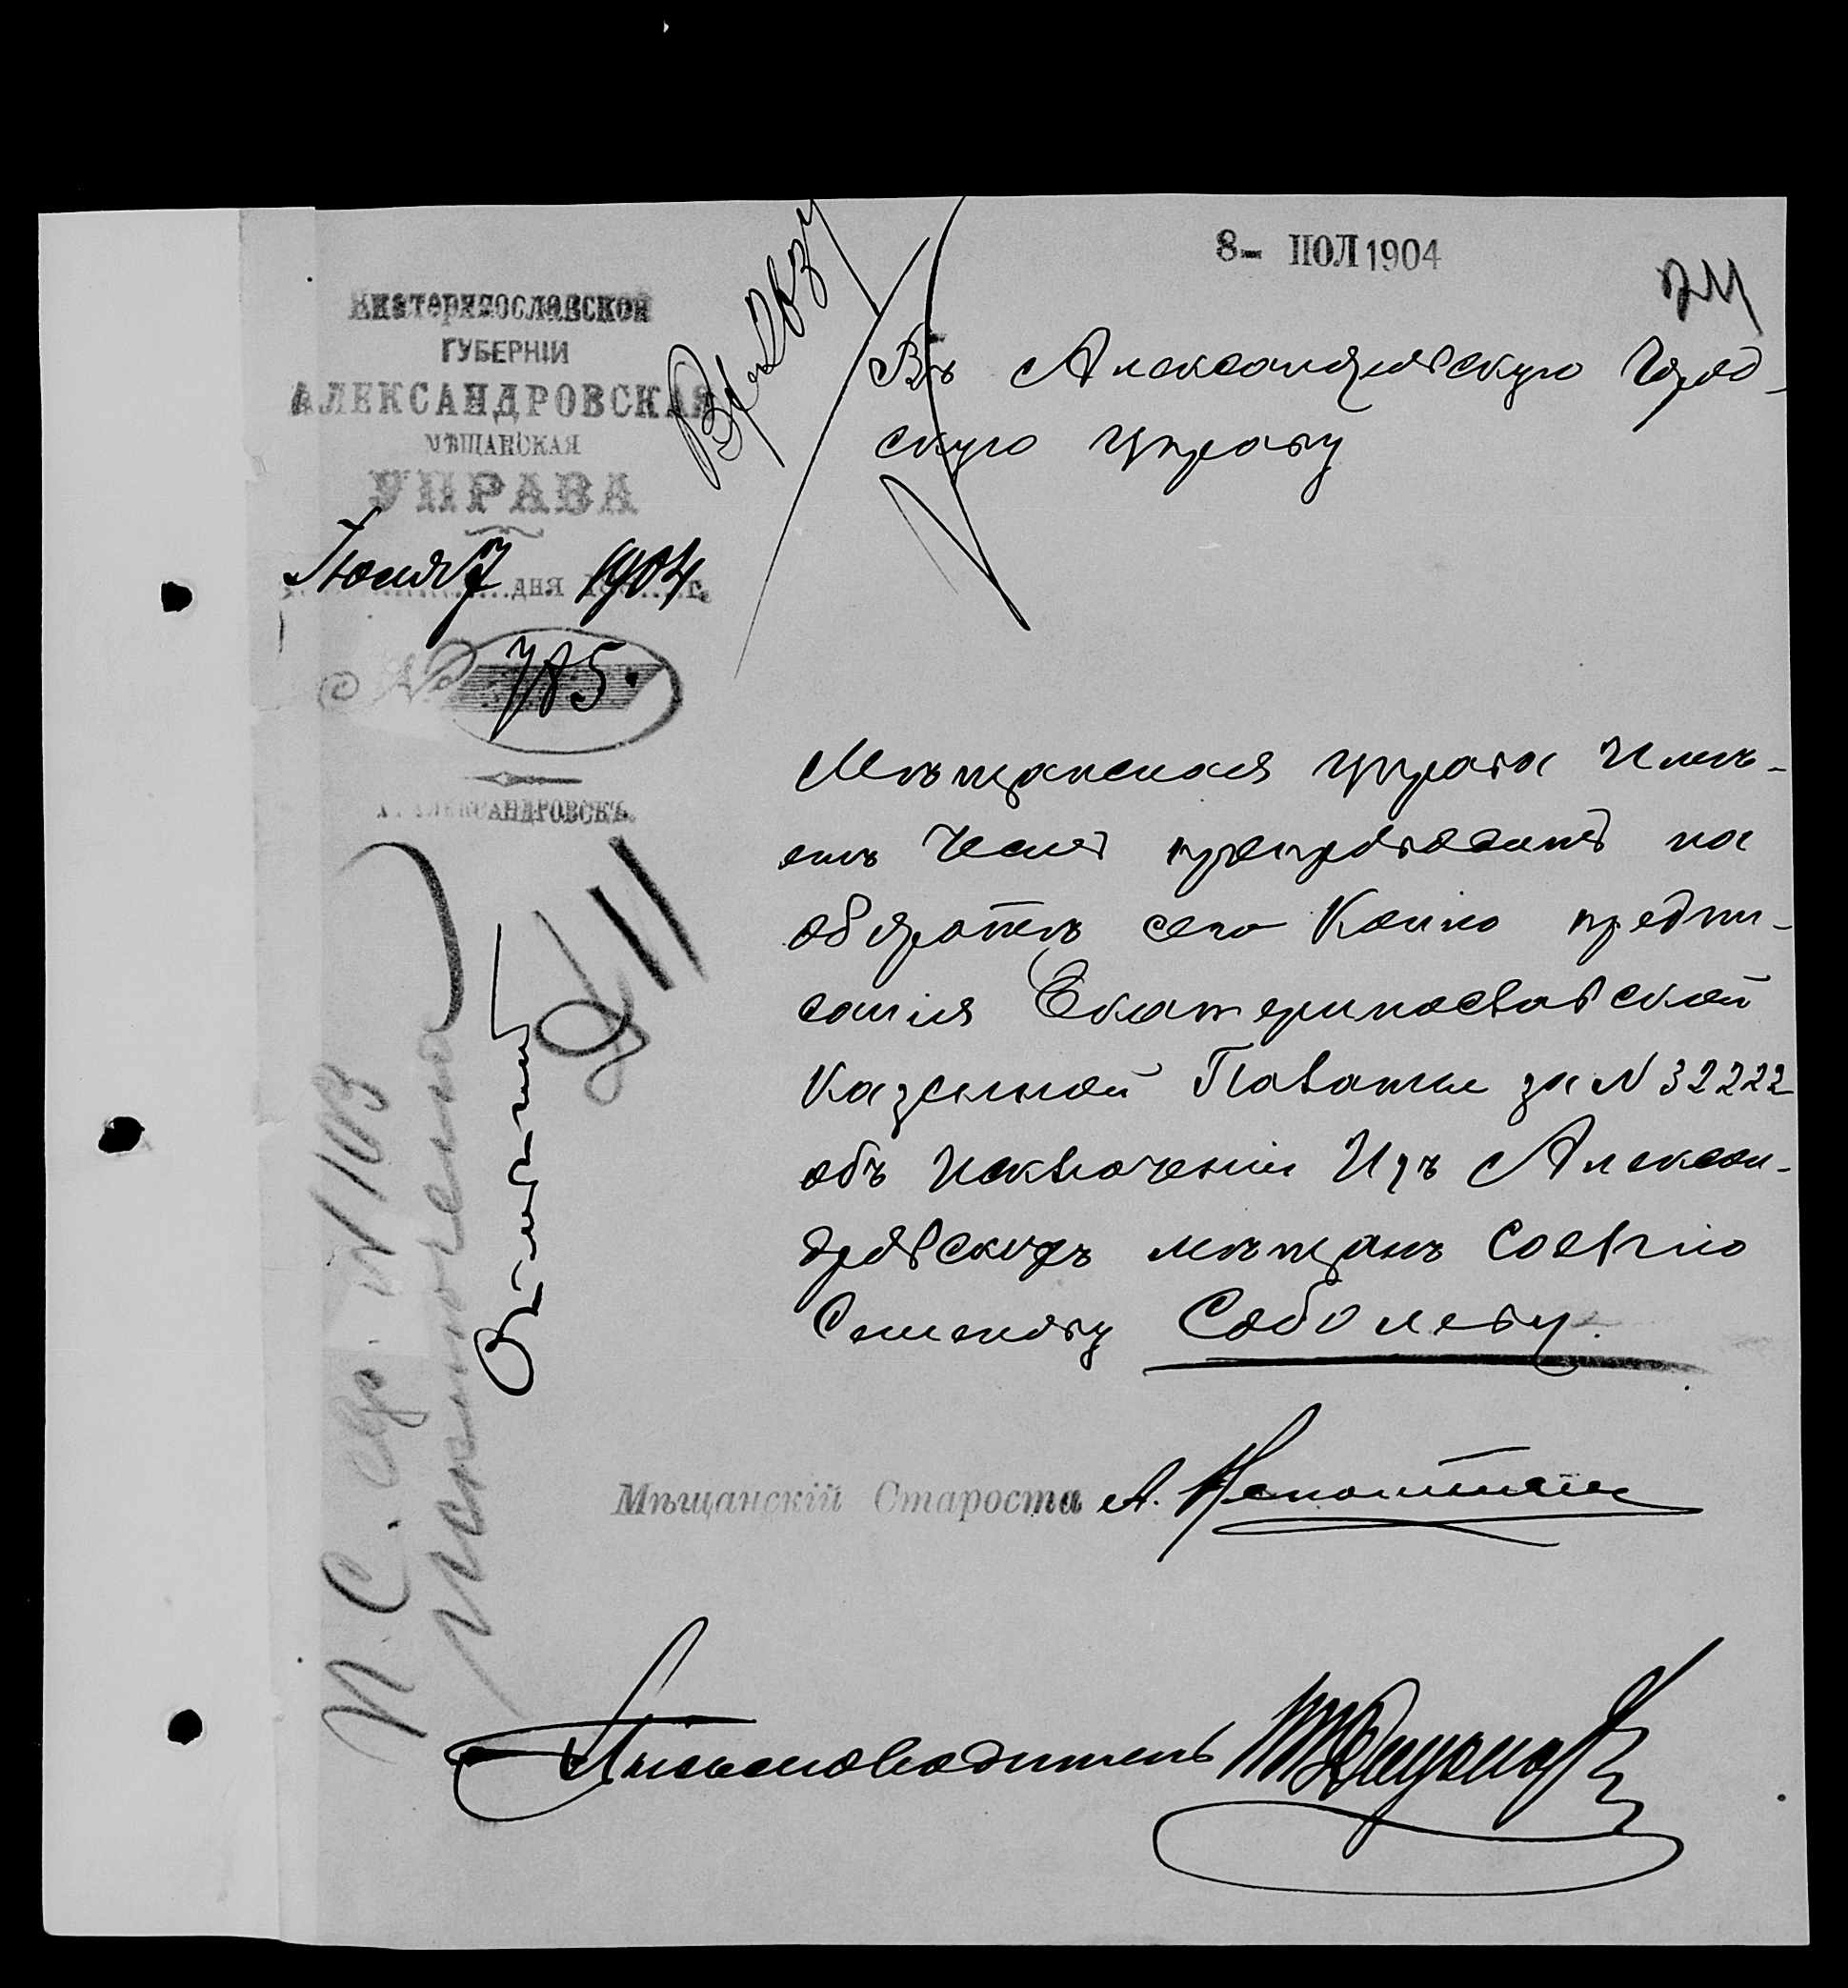 8- ІЮЛ 1904
Екатеринославской
ГУБЕРНІИ
АЛЕКСАНДРОВСКАЯ
МѢЩАНСКАЯ
УПРАВА
Іюля 7 дня 1904 г.
№ 785.
Г. АЛЕКСАНДРОВСКЪ.
Въ Александровскую Город-
скую Управу
Мѣщанская управа Имѣ-
етъ Честь препроводить на
оборотѣ сего Копію предпи-
санія Екатеринославской
Казенной Палаты за N 32222
объ Исключеніи Изъ Алексан-
дровскихъ мѣщанъ Софію
Семенову Соболеву.
Мѣщанскій Староста А.
Письмоводитель
П. С. стр. N 103
Исключена